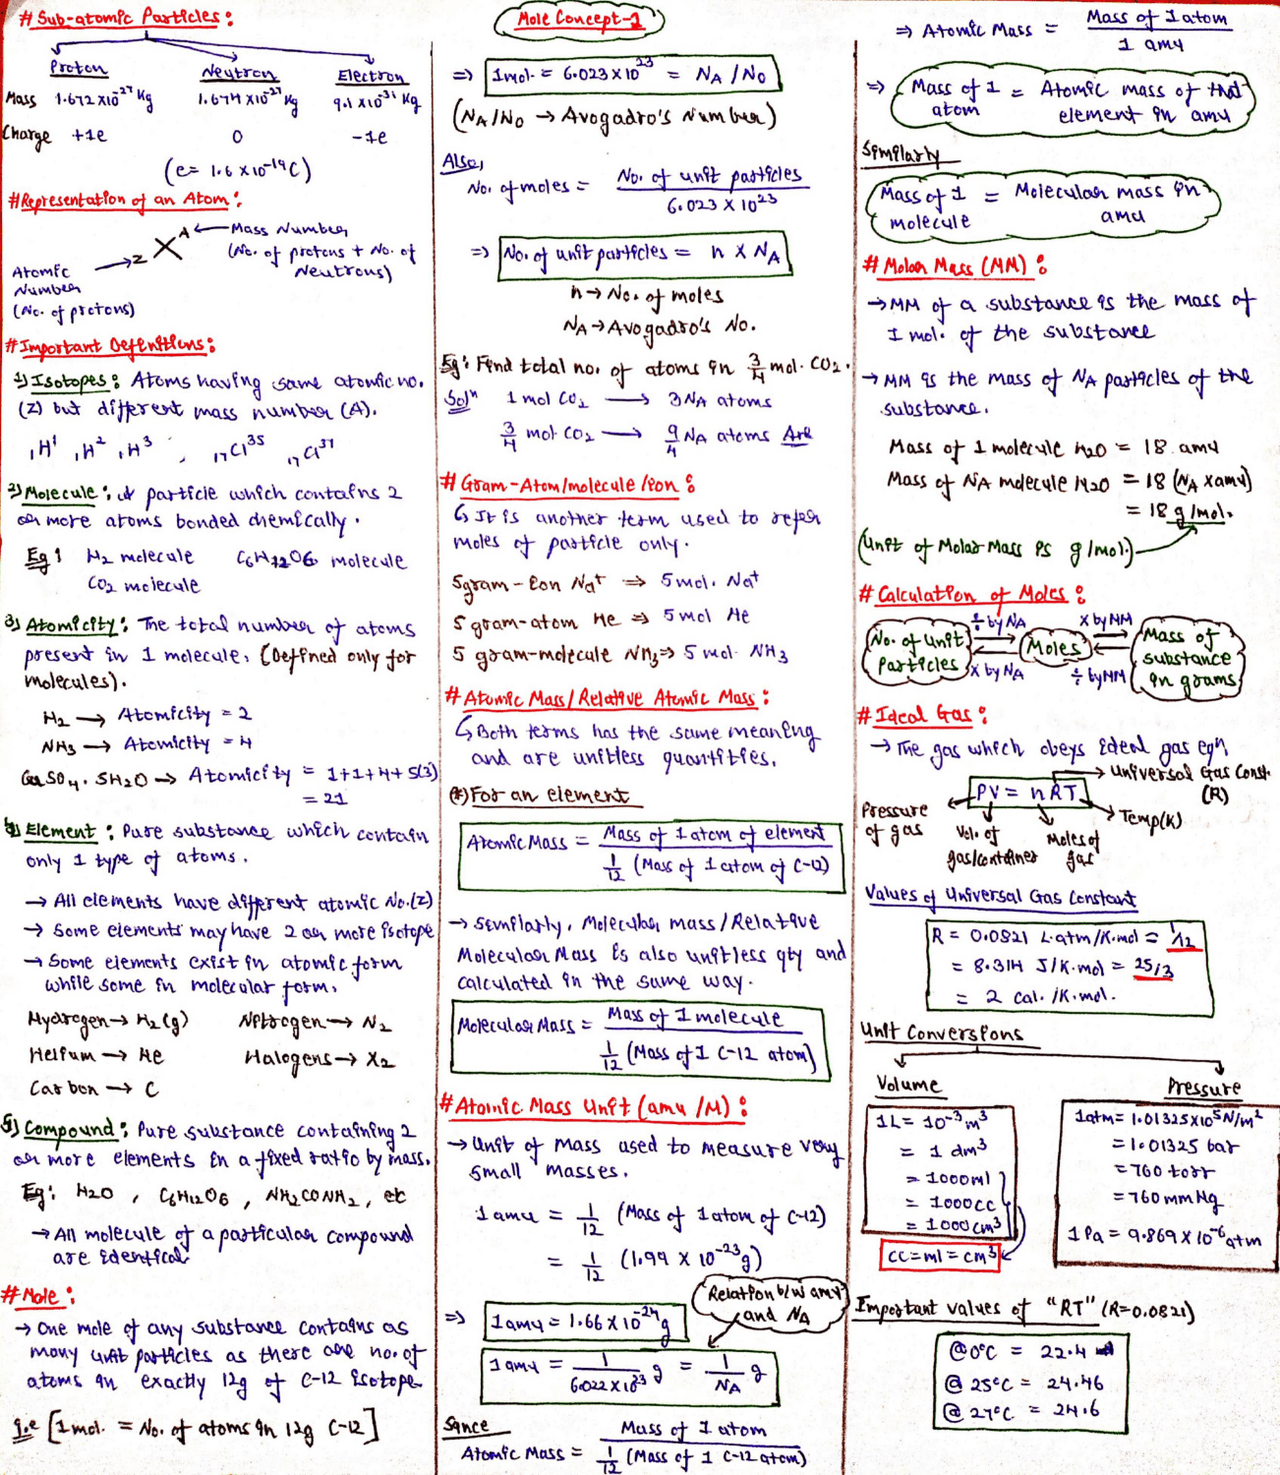 # Sub-atomic Particles:
Proton Neutron Electron
Mass 1.672x10⁻²⁷ Kg 1.674x10⁻²⁷ Kg 9.1 x10⁻³¹ Kg
Charge +1e 0 -1e
(e = 1.6 x 10⁻¹⁹C)
# Representation of an Atom:
zXᴬ ← Mass Number
(No. of protons + No. of Neutrons)
Atomic Number → z
(No. of protons)
# Important Definitions:
1) Isotopes: Atoms having same atomic no.
(Z) but different mass number (A).
₁H¹ ₁H² ₁H³ ; ₁₇Cl³⁵ ₁₇Cl³⁷
2) Molecule: A particle which contains 2
or more atoms bonded chemically.
Eg: H₂ molecule C₆H₁₂O₆ molecule
CO₂ molecule
3) Atomicity: The total number of atoms
present in 1 molecule. (Defined only for
molecules).
H₂ → Atomicity = 2
NH₃ → Atomicity = 4
CuSO₄.5H₂O → Atomicity = 1+1+4+5(3)
= 21
4) Element: Pure substance which contain
only 1 type of atoms.
→ All elements have different atomic No.(Z)
→ Some elements may have 2 or more isotope
→ Some elements exist in atomic form
while some in molecular form.
Hydrogen → H₂(g) Nitrogen → N₂
Helium → He Halogens → X₂
Carbon → C
5) Compound: Pure substance containing 2
or more elements in a fixed ratio by mass.
Eg: H₂O, C₆H₁₂O₆, NH₂CONH₂, etc
→ All molecule of a particular compound
are identical
# Mole:
→ One mole of any substance contains as
many unit particles as there are no. of
atoms in exactly 12g of C-12 isotope
i.e [1 mol. = No. of atoms in 12g C-12]
Mole Concept-1
⇒ 1mol. = 6.023x10²³ = NA / N₀
(NA/N₀ → Avogadro's Number)
Also,
No. of moles = No. of unit particles / 6.023 x 10²³
⇒ No. of unit particles = n x NA
n → No. of moles
NA → Avogadro's No.
Eg: Find total no. of atoms in 3/4 mol. CO₂.
Solⁿ 1 mol CO₂ → 3NA atoms
3/4 mol CO₂ → 9/4 NA atoms Ans
# Gram-Atom/molecule/ion:
↳ It is another term used to refer
moles of particle only.
5gram-ion Na⁺ ⇒ 5mol. Na⁺
5 gram-atom He ⇒ 5 mol He
5 gram-molecule NH₃ ⇒ 5 mol. NH₃
# Atomic Mass/Relative Atomic Mass:
↳ Both terms has the same meaning
and are unitless quantities.
(*) For an element
Atomic Mass = Mass of 1 atom of element / 1/12 (Mass of 1 atom of C-12)
→ Similarly, Molecular mass/Relative
Molecular Mass is also unitless qty and
calculated in the same way.
Molecular Mass = Mass of 1 molecule / 1/12 (Mass of 1 C-12 atom)
# Atomic Mass Unit (amu /M):
→ Unit of mass used to measure very
small masses.
1 amu = 1/12 (Mass of 1 atom of C-12)
= 1/12 (1.99 x 10⁻²³g)
Relation b/w amu
and NA
⇒ 1 amu = 1.66 x 10⁻²⁴g
1 amu = 1 / 6.022x10²³ g = 1/NA g
Since
Atomic Mass = Mass of 1 atom / 1/12 (Mass of 1 C-12 atom)
⇒ Atomic Mass = Mass of 1 atom / 1 amu
⇒ Mass of 1 atom = Atomic mass of that element in amu
Similarly
Mass of 1 molecule = Molecular mass in amu
# Molar Mass (MM):
→ MM of a substance is the mass of
1 mol. of the substance
→ MM is the mass of NA particles of the
substance.
Mass of 1 molecule H₂O = 18 amu
Mass of NA molecule H₂O = 18 (NA x amu)
= 18 g/mol.
(Unit of Molar Mass is g/mol.)
# Calculation of Moles:
No. of Unit Particles ÷ by NA x by NA Moles x by MM ÷ by MM Mass of substance in grams
# Ideal Gas:
→ The gas which obeys ideal gas eqⁿ.
PV = nRT
Universal Gas Const. (R)
Pressure of gas
Vol. of gas/container
Moles of gas
Temp(K)
Values of Universal Gas Constant
R = 0.0821 L.atm/K.mol = 1/12
= 8.314 J/K.mol = 25/3
= 2 cal./K.mol.
Unit Conversions
Volume
1L = 10⁻³ m³
= 1 dm³
= 1000ml
= 1000cc
= 1000cm³
cc = ml = cm³
Pressure
1atm = 1.01325x10⁵ N/m²
= 1.01325 bar
= 760 torr
= 760 mm Hg
1 Pa = 9.869 x 10⁻⁶ atm
Important values of "RT" (R=0.0821)
@ 0°C = 22.4
@ 25°C = 24.46
@ 27°C = 24.6